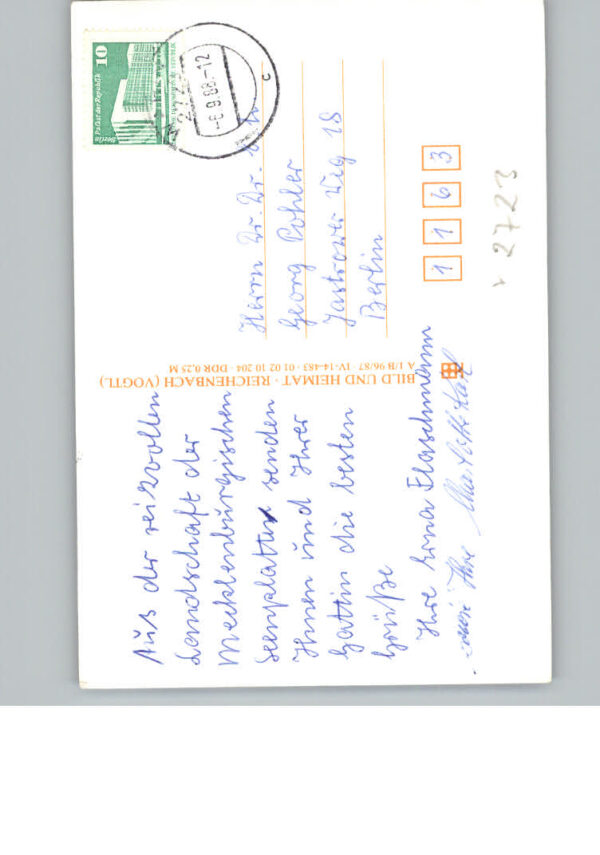 Aus der reizvollen
Landschaft der
Mecklenburgischen
Seenplatte senden
Ihnen und Ihrer
Gattin die besten
Grüße
Ihre Erna Flaschmann
Ihre
BILD UND HEIMAT · REICHENBACH (VOGTL)
A 1/B 96/87 · IV-14-483 · 01 02 10 204 · DDR 0,25 M
10
Palast der Republik
Berlin
-6.9.88.-12
c
Herrn Dr. Dr.
Georg Pohler
Jastrower Weg 18
Berlin
1 1 6 3
v 2723